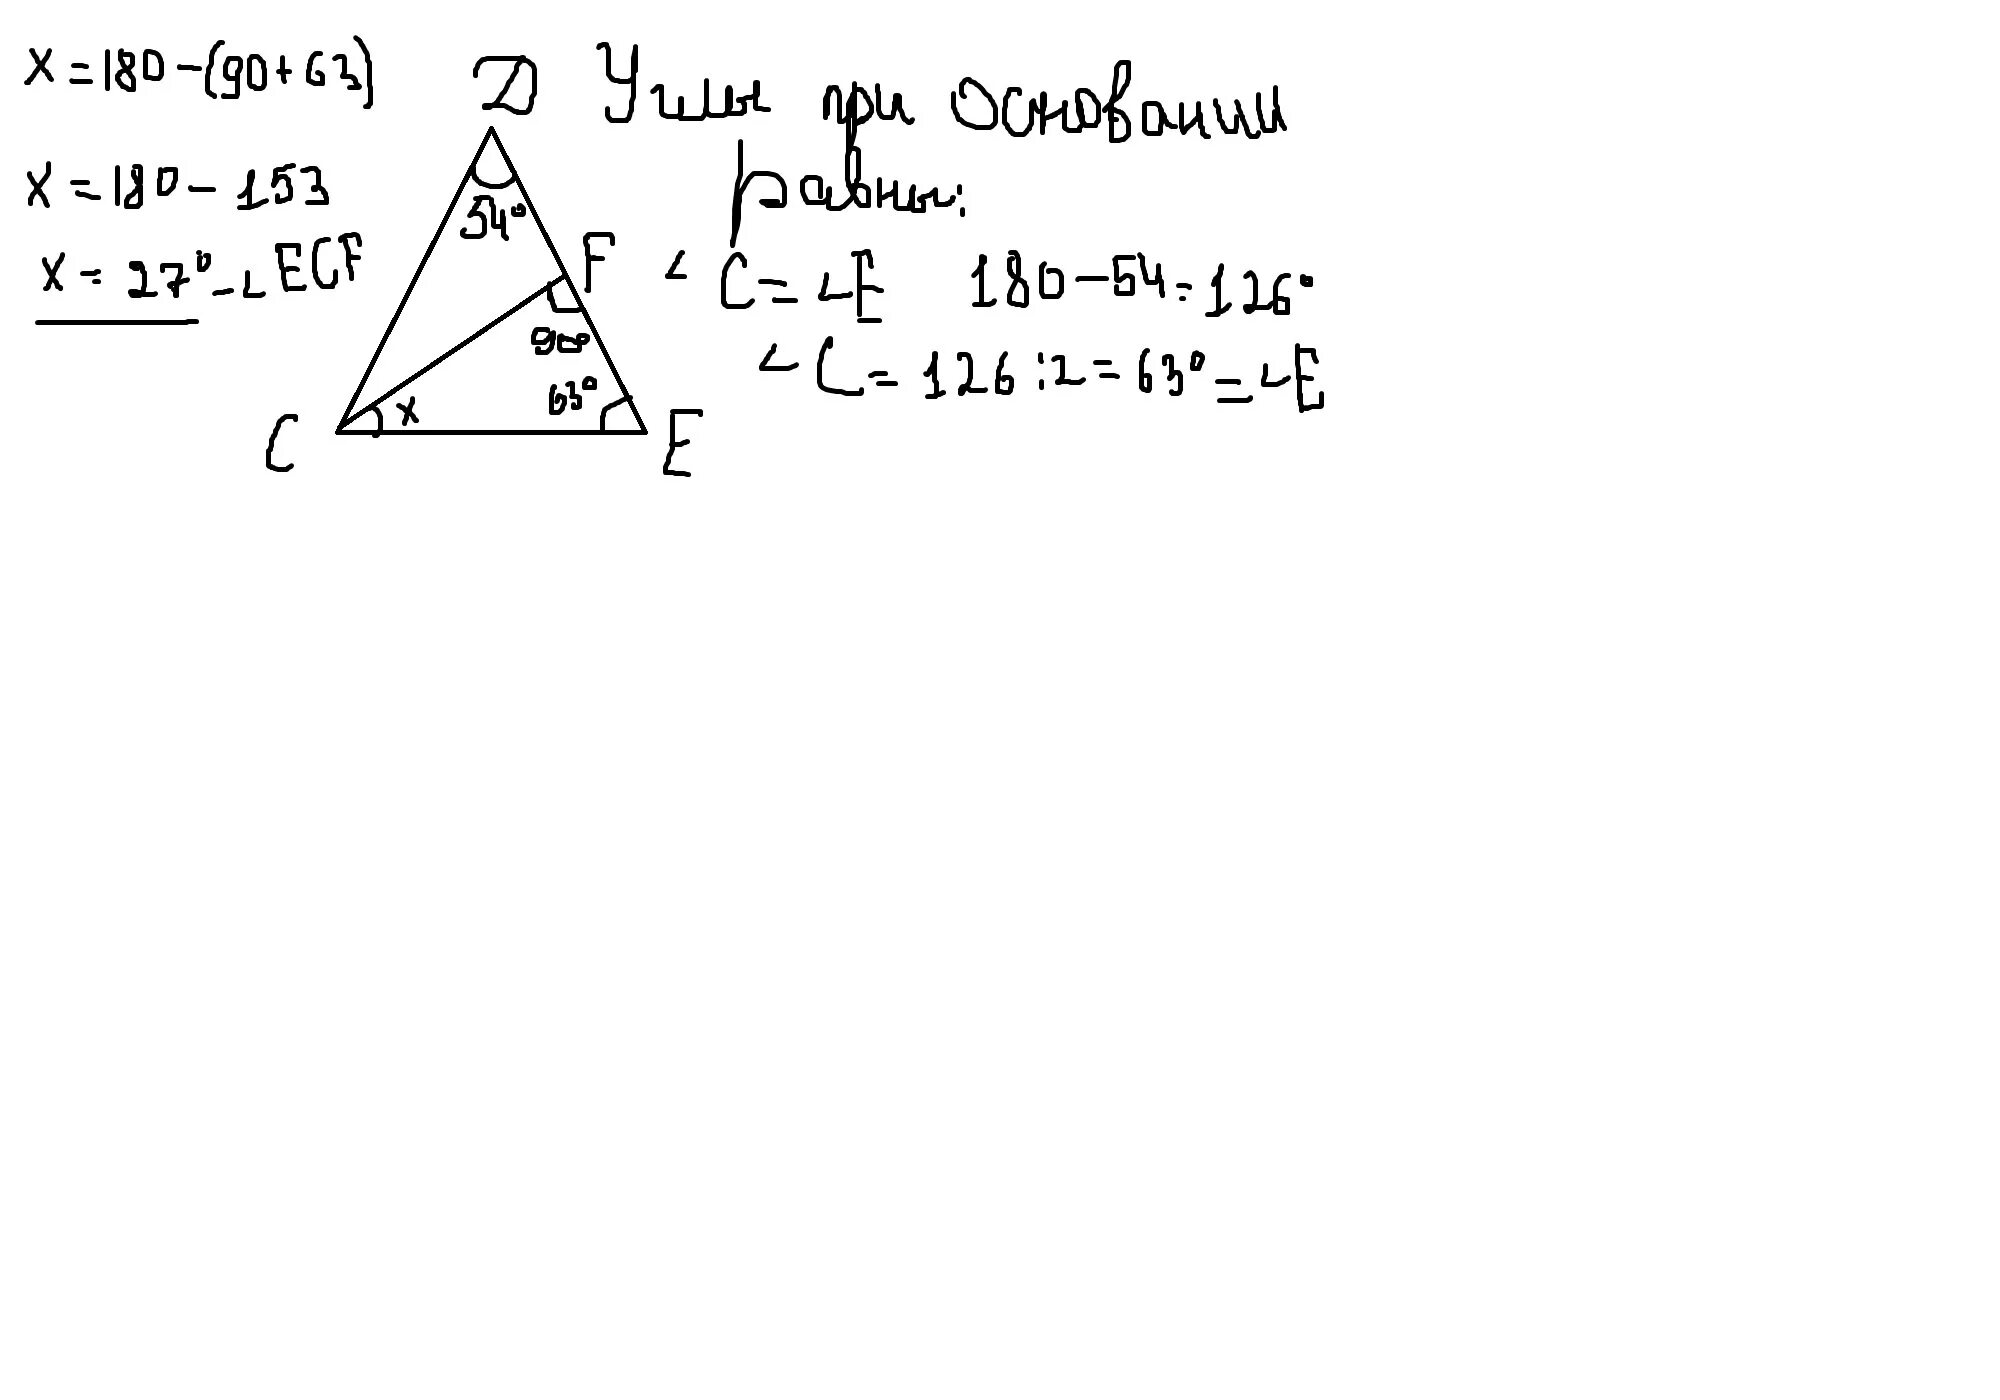 x = 180 - (90 + 63)
x = 180 - 153
x = 27° - ∠ECF
D
54°
F
90°
63°
x
C
E
Углы при основании
равны:
∠C = ∠E 180 - 54 = 126°
∠C = 126 : 2 = 63° = ∠E